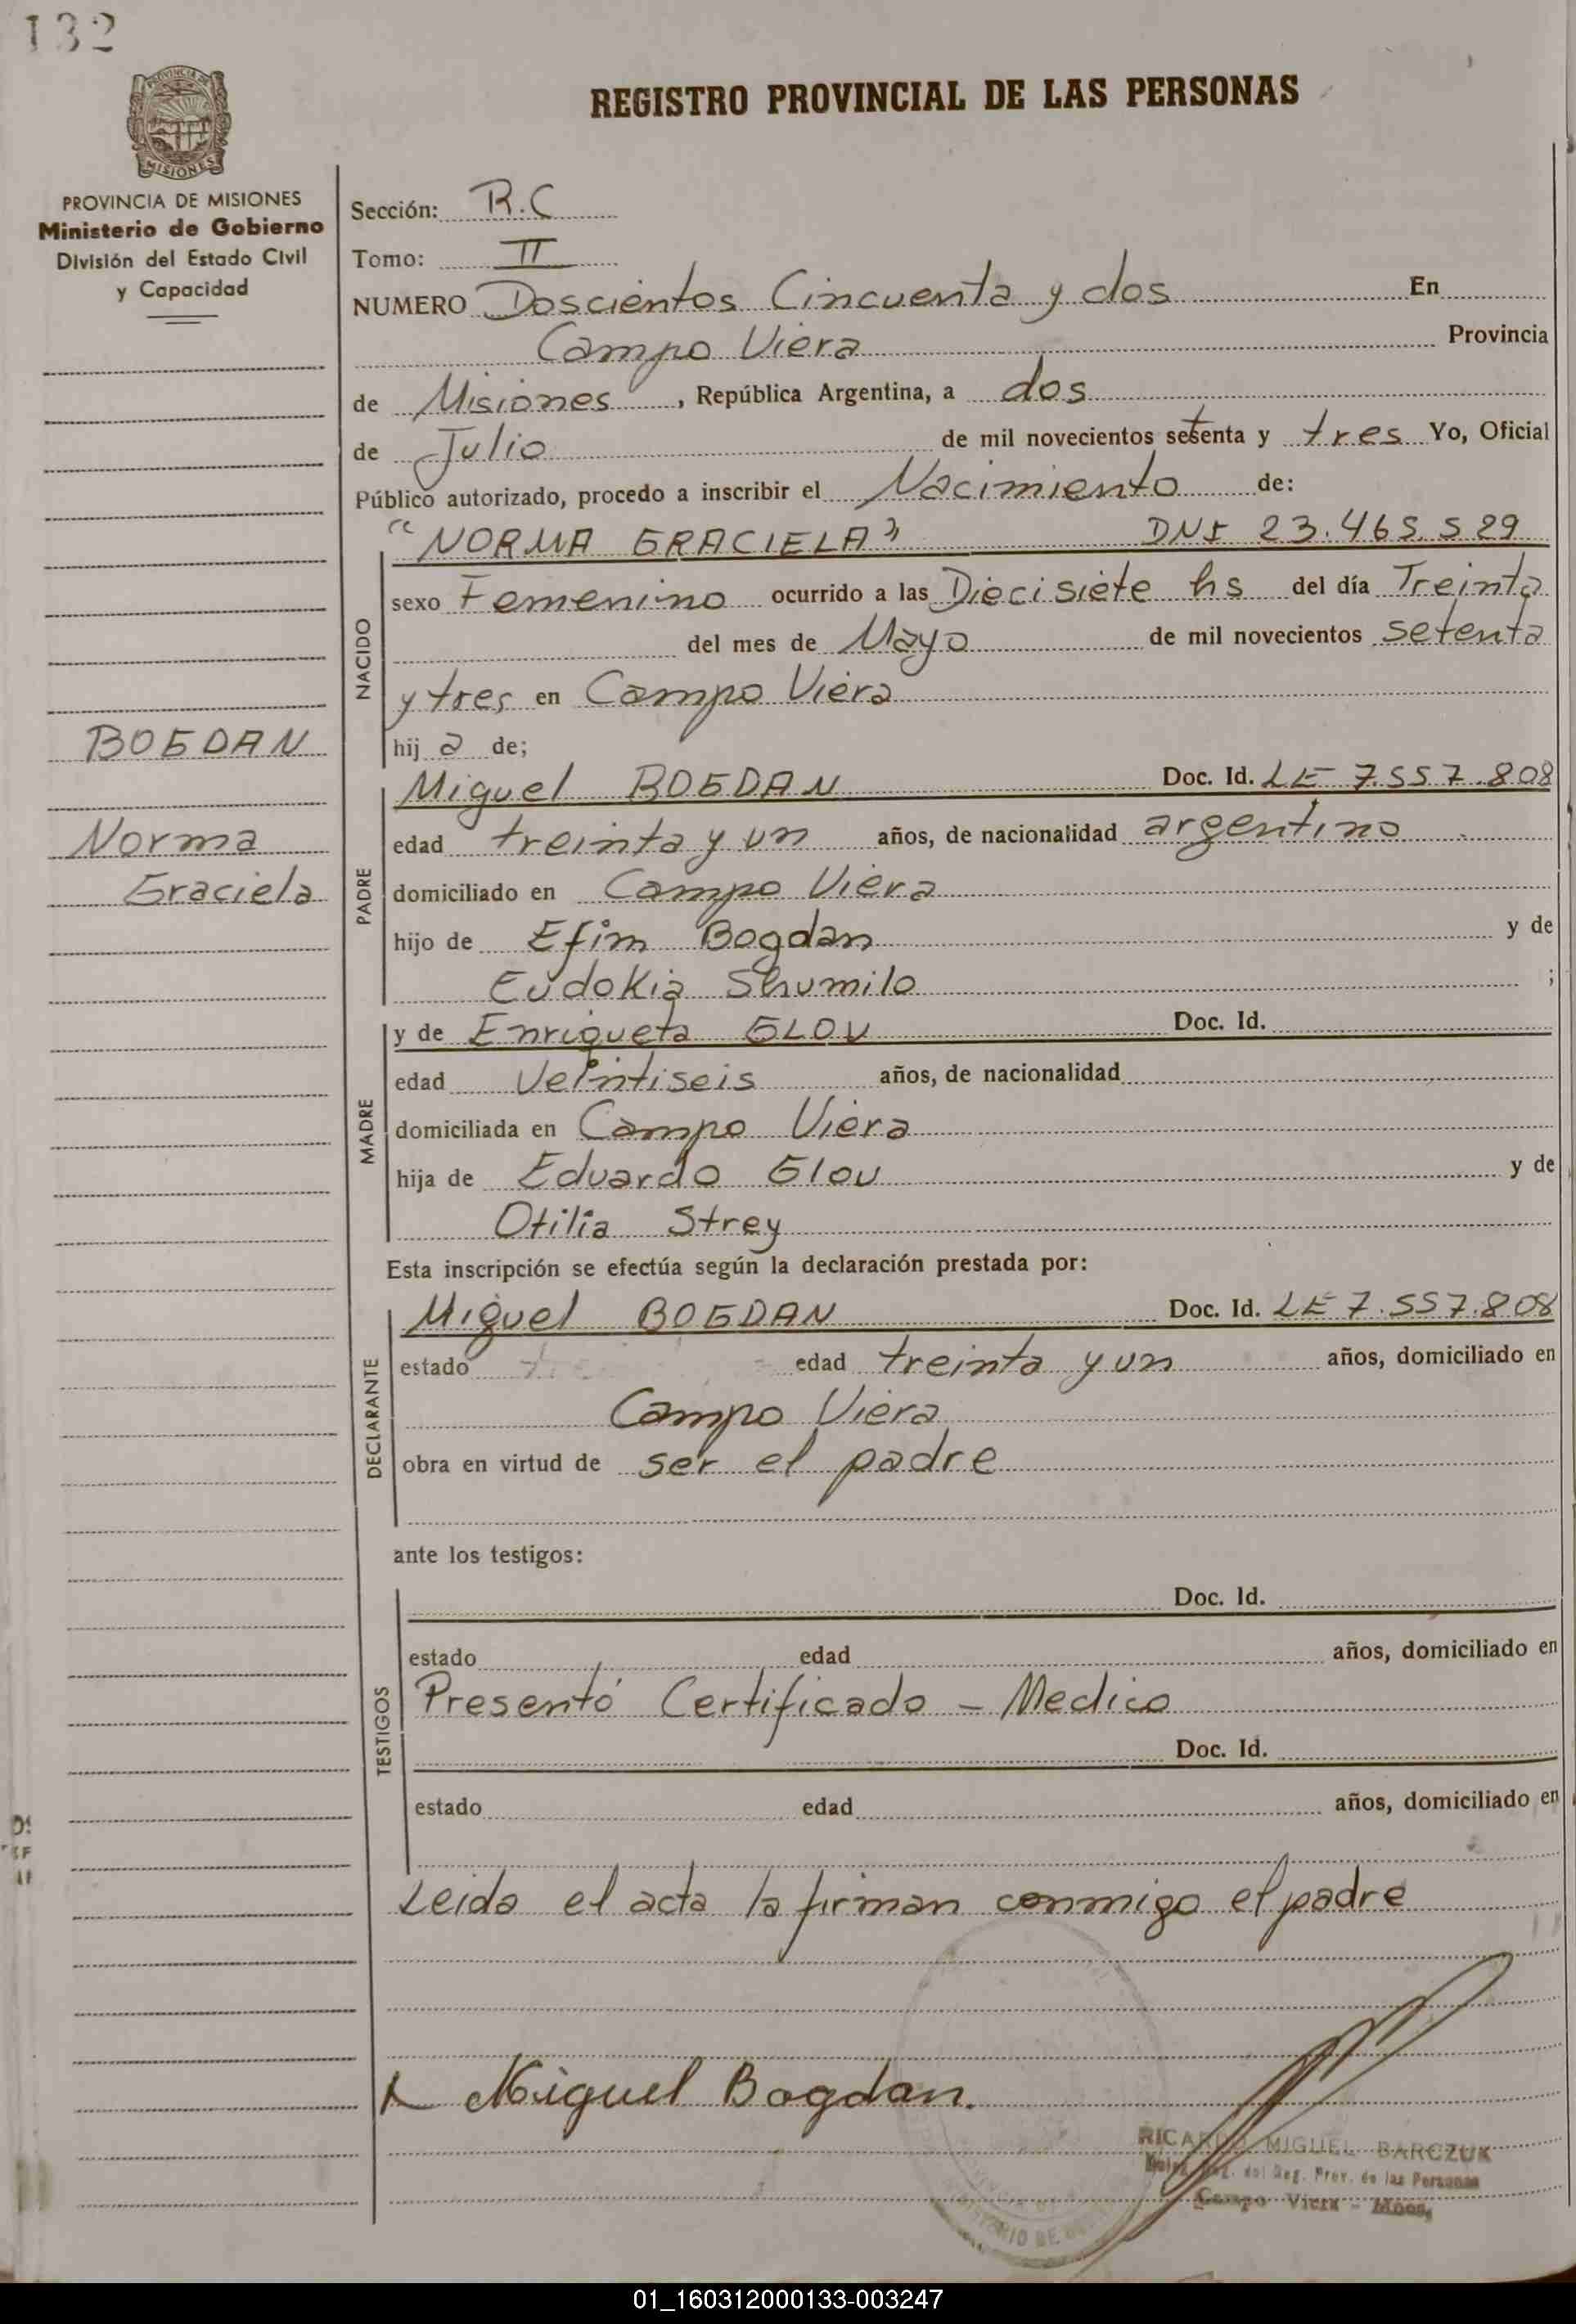 132
REGISTRO PROVINCIAL DE LAS PERSONAS
PROVINCIA DE MISIONES
Ministerio de Gobierno
División del Estado Civil
y Capacidad
Sección: R.C
Tomo: II
NUMERO Doscientos Cincuenta y dos En
Campo Viera Provincia
de Misiones, República Argentina, a dos
de Julio de mil novecientos setenta y tres Yo, Oficial
Público autorizado, procedo a inscribir el Nacimiento de:
"NORMA GRACIELA" DNI 23.465.529
NACIDO
sexo Femenino ocurrido a las Diecisiete hs del día Treinta
del mes de Mayo de mil novecientos setenta
y tres en Campo Viera
hija de;
BOGDAN
Norma
Graciela
PADRE
Miguel BOGDAN Doc. Id. LE 7.557.808
edad treinta y un años, de nacionalidad argentino
domiciliado en Campo Viera
hijo de Efim Bogdan y de
Eudokia Shumilo ;
MADRE
y de Enriqueta GLOU Doc. Id.
edad Veintiseis años, de nacionalidad
domiciliada en Campo Viera
hija de Eduardo Glou y de
Otilia Strey
Esta inscripción se efectúa según la declaración prestada por:
DECLARANTE
Miguel BOGDAN Doc. Id. LE 7.557.808
estado edad treinta y un años, domiciliado en
Campo Viera
obra en virtud de ser el padre
ante los testigos:
TESTIGOS
Doc. Id.
estado edad años, domiciliado en
Presentó Certificado - Medico
Doc. Id.
estado edad años, domiciliado en
Leida el acta la firman conmigo el padre
Miguel Bogdan.
RICARDO MIGUEL BARCZUK
del Reg. Prov. de las Personas
Campo Viera - Mnes.
01_160312000133-003247